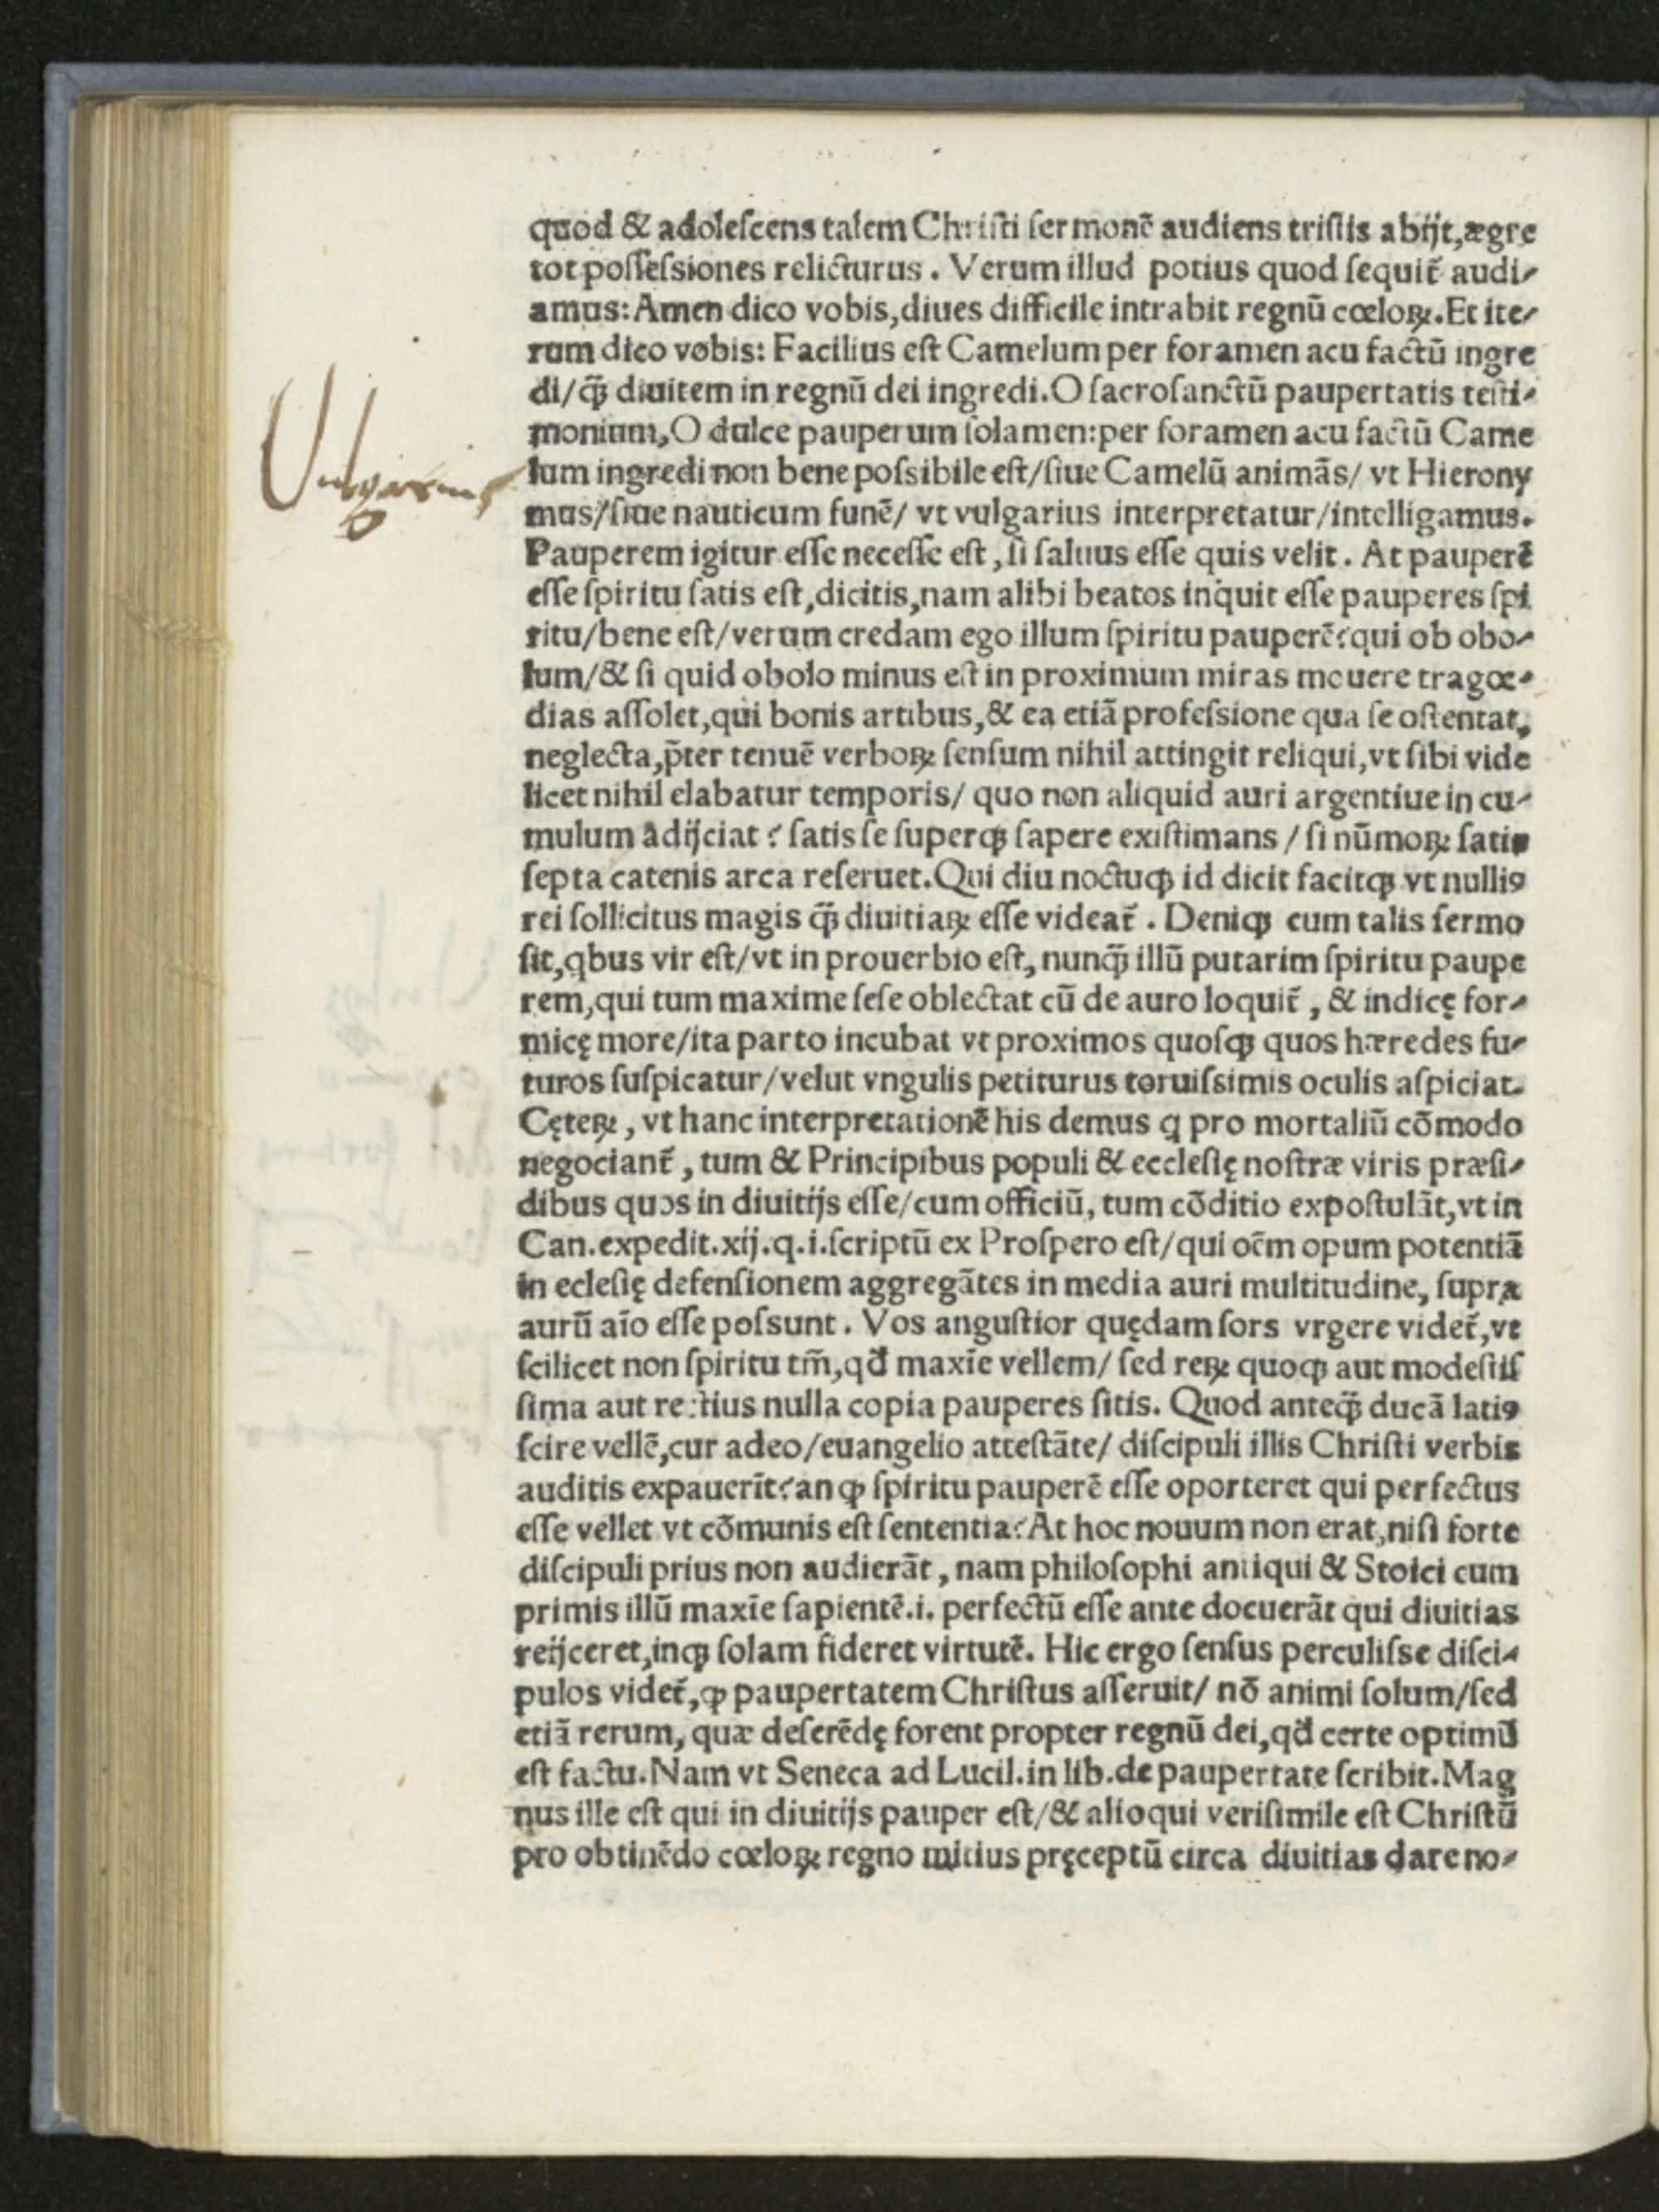 quod & adoleſcens talem Chriſti ſermonē audiens triſtis abijt,ægre
tot poſſeſsiones relicturus. Verum illud potius quod ſequit̃ audi-
amus:Amen dico vobis,diues difficile intrabit regnū cœloꝝ.Et ite-
rum dico vobis: Facilius eſt Camelum per foramen acu factū ingre
di/q̃ꝫ diuitem in regnū dei ingredi.O ſacroſanctū paupertatis teſti-
monium,O dulce pauperum ſolamen:per foramen acu factū Came
Vulgarius
lum ingredi non bene poſsibile eſt/ſiue Camelū animãs/ vt Hierony
mus/ſiue nauticum funē/ vt vulgarius interpretatur/intelligamus.
Pauperem igitur eſſe neceſſe eſt,ſi ſaluus eſſe quis velit. At pauperē
eſſe ſpiritu ſatis eſt,dicitis,nam alibi beatos inquit eſſe pauperes ſpi
ritu/bene eſt/verum credam ego illum ſpiritu pauperē?qui ob obo-
lum/& ſi quid obolo minus eſt in proximum miras mouere tragœ-
dias aſſolet,qui bonis artibus,& ea etiã profeſsione qua ſe oſtentat,
neglecta,p̃ter tenuē verboꝝ ſenſum nihil attingit reliqui,vt ſibi vide
licet nihil elabatur temporis/ quo non aliquid auri argentiue in cu-
mulum adijciat? ſatis ſe ſuperqꝫ ſapere exiſtimans/ſi nūmoꝝ ſatis
ſepta catenis arca reſeruet.Qui diu noctuqꝫ id dicit facitqꝫ vt nulliꝰ
rei ſollicitus magis q̃ꝫ diuitiaꝝ eſſe videat̃. Deniqꝫ cum talis ſermo
ſit,qbus vir eſt/vt in prouerbio eſt, nunq̃ꝫ illū putarim ſpiritu paupe
rem,qui tum maxime ſeſe oblectat cū de auro loquit̃, & indicę for-
micę more/ita parto incubat vt proximos quoſqꝫ quos hæredes fu-
turos ſuſpicatur/velut vngulis petiturus toruiſsimis oculis aſpiciat.
Cęteꝝ, vt hanc interpretationē his demus q pro mortaliū cōmodo
negociant̃, tum & Principibus populi & eccleſię noſtræ viris præſi-
dibus quos in diuitijs eſſe/cum officiū, tum cōditio expoſtulãt,vt in
Can.expedit.xij.q.i.ſcriptū ex Proſpero eſt/qui oēm opum potentiã
in ecleſię defenſionem aggregãtes in media auri multitudine, ſupra
aurū aīo eſſe poſsunt. Vos anguſtior quędam ſors vrgere videt̃,vt
ſcilicet non ſpiritu tm̃,qđ maxīe vellem/ ſed reꝝ quoqꝫ aut modeſtiſ
ſima aut rectius nulla copia pauperes ſitis. Quod anteq̃ꝫ ducã latiꝰ
ſcire vellē,cur adeo/euangelio atteſtãte/ diſcipuli illis Chriſti verbis
auditis expauerīt?an ꝙ ſpiritu pauperē eſſe oporteret qui perfectus
eſſe vellet vt cōmunis eſt ſententia?At hoc nouum non erat,niſi forte
diſcipuli prius non audierãt, nam philoſophi antiqui & Stoici cum
primis illū maxīe ſapientē.i. perfectū eſſe ante docuerãt qui diuitias
reijceret,inqꝫ ſolam fideret virtutē. Hic ergo ſenſus perculiſse diſci-
pulos videt̃,ꝙ paupertatem Chriſtus aſſeruit/ nō animi ſolum/ſed
etiã rerum, quæ deſerēdę forent propter regnū dei,qđ certe optimū
eſt factu.Nam vt Seneca ad Lucil.in lib.de paupertate ſcribit.Mag
nus ille eſt qui in diuitijs pauper eſt/& alioqui veriſimile eſt Chriſtū
pro obtinēdo cœloꝝ regno mitius pręceptū circa diuitias dare no-